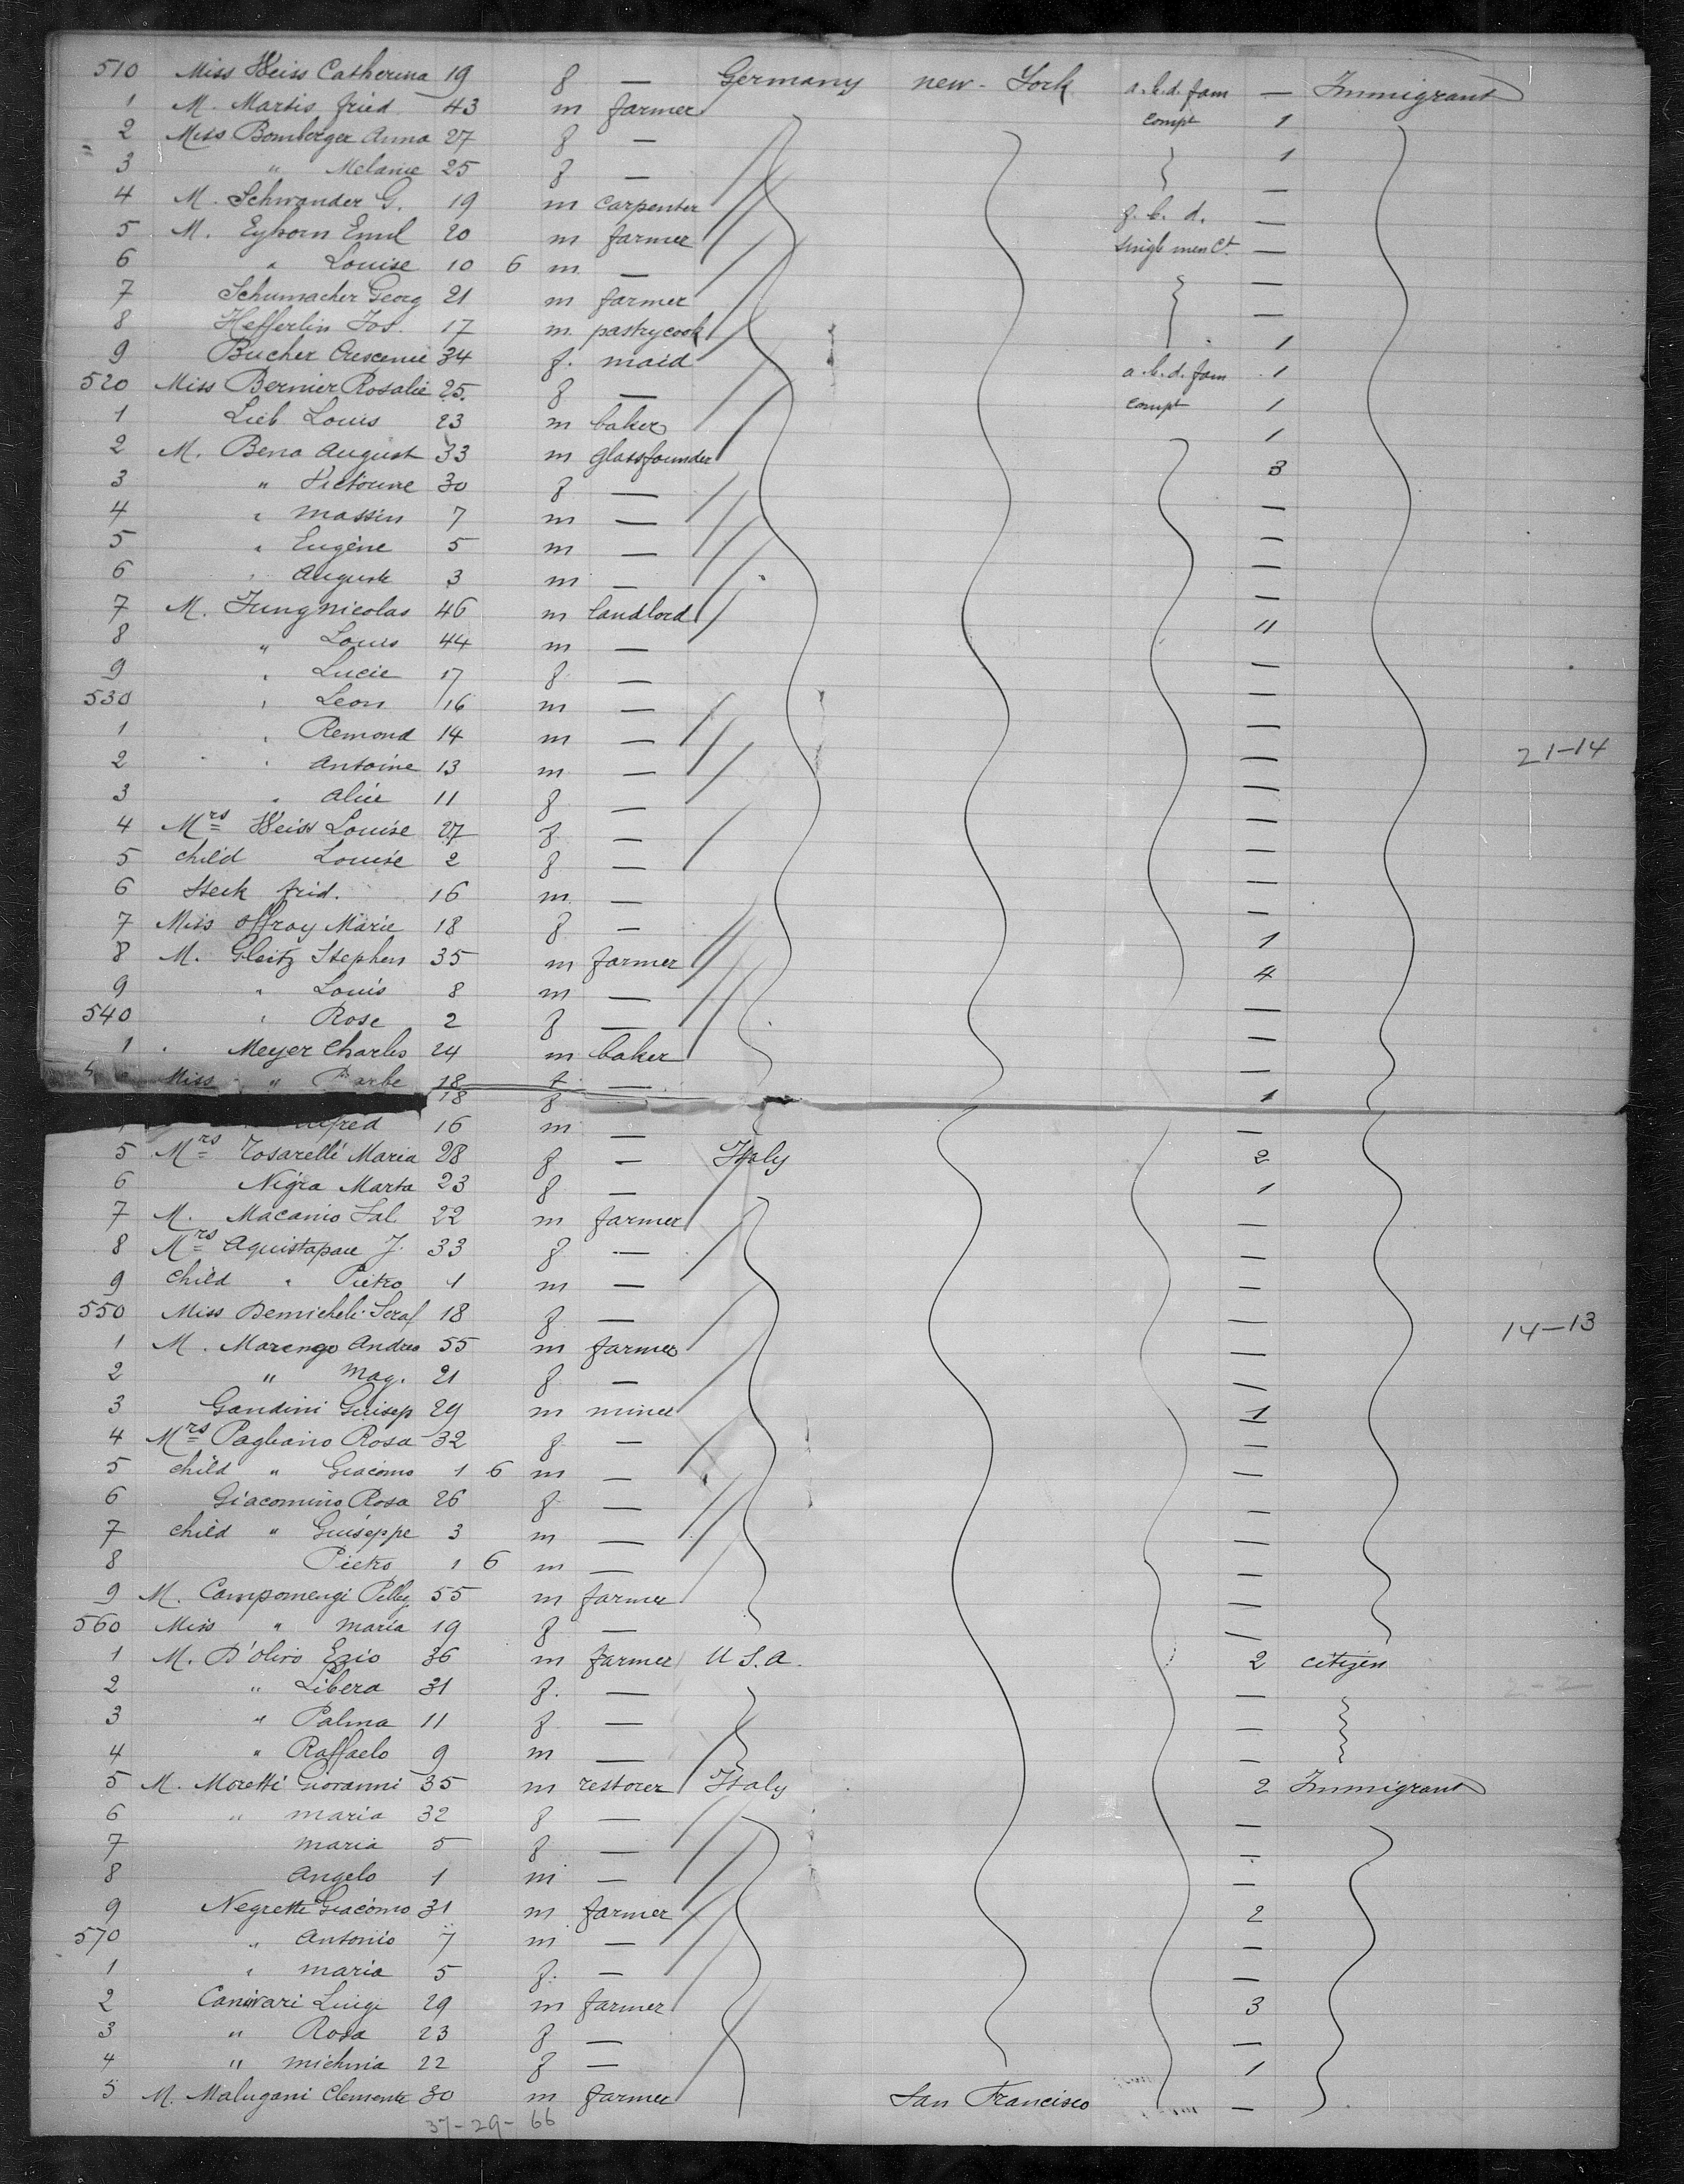 510 Miss Weiss Catherina 19 f — Germany new-York a.b.d. fam — Immigrant
1 M. Martis fried 43 m farmer compt 1
2 Miss Bomberger Anna 27 f — 1
3 " Melanie 25 f — —
4 M. Schwander G. 19 m carpenter f. b. d. —
5 M. Eyhorn Emil 20 m farmer single men Ct. —
6 " Louise 10 6 m — —
7 Schumacher Georg 21 m farmer —
8 Hefferlin Jos. 17 m pastrycook 1
9 Bucher Crescenie 34 f. maid a.b.d. fam 1
520 Miss Bernier Rosalie 25. f — compt 1
1 Lieb Louis 23 m baker 1
2 M. Bena August 33 m glassfounder 3
3 " Victorine 30 f — —
4 " Massin 7 m — —
5 " Eugène 5 m — —
6 " Auguste 3 m — —
7 M. Jung nicolas 46 m landlord 11
8 " Louis 44 m — —
9 " Lucie 17 f — —
530 " Leon 16 m — —
1 " Remond 14 m — —
2 " Antoine 13 m — — 21-14
3 " Alice 11 f — —
4 Mrs Weiss Louise 27 f — —
5 child Louise 2 f — —
6 Steck frid. 16 m — —
7 Miss Offroy Marie 18 f — 1
8 M. Gleitz Stephen 35 m farmer 4
9 " Louis 8 m — —
540 " Rose 2 f — —
1 Meyer Charles 24 m baker —
Miss " Barbe 18 f — 1
18 f
16 m — —
5 Mrs Tosarelli Maria 28 f — Italy 2
6 Nigra Marta 23 f — 1
7 M. Macanio Sal. 22 m farmer —
8 Mrs Aquistapace J. 33 f — —
9 child " Pietro 1 m — —
550 Miss Demicheli Seraf 18 f — — 14-13
1 M. Marengo Andrea 55 m farmer —
2 " Mag. 21 f — —
3 Gandini Guisep 29 m miner 1
4 Mrs Pagliano Rosa 32 f — —
5 child " Giacomo 1 6 m — —
6 Giacomino Rosa 26 f — —
7 child " Guiseppe 3 m — —
8 Pietro 1 6 m — —
9 M. Campomengi Pelleg 55 m farmer —
560 Miss " maria 19 f — —
1 M. D'Olivo Ezio 36 m farmer U S.A. 2 citizen
2 " Libera 31 f. — —
3 " Palma 11 f — —
4 " Raffaelo 9 m — —
5 M. Moretti Giovanni 35 m restorer Italy 2 Immigrant
6 " maria 32 f — —
7 maria 5 f — —
8 Angelo 1 m — —
9 Negrette Giacomo 31 m farmer 2
570 " Antonio 7 m — —
1 " maria 5 f. — —
2 Canivari Luigi 29 m farmer 3
3 " Rosa 23 f — —
4 " michnia 22 f — 1
5 M. Malugani Clemente 30 m farmer San Francisco —
37-29-66